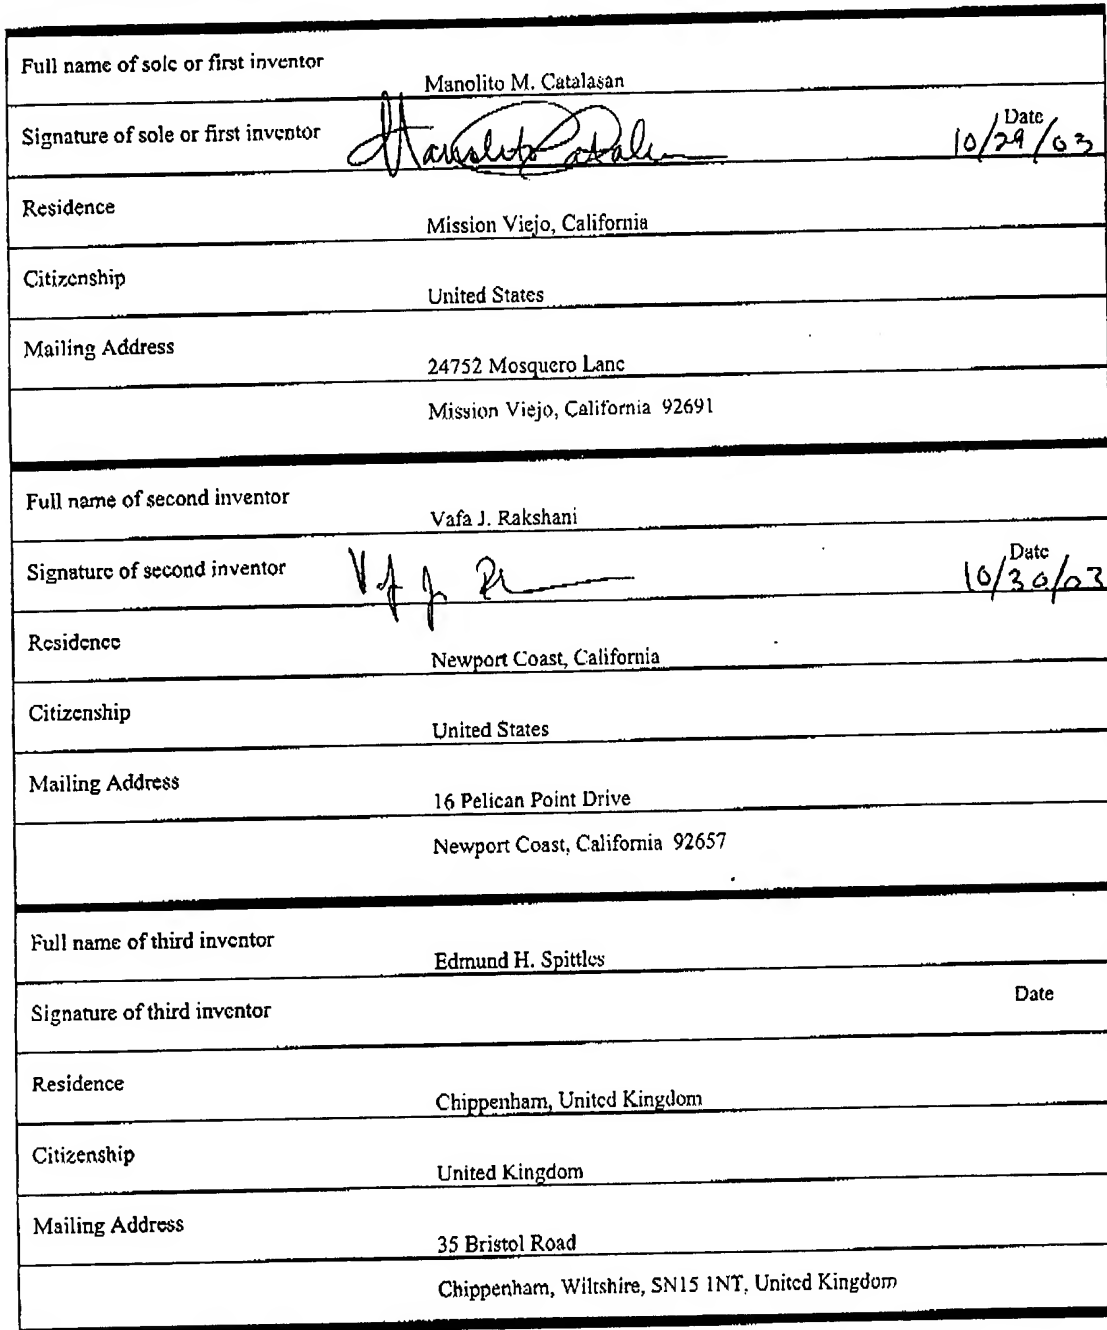 Full name of sole or first inventor
Manolito M. Catalasan
Signature of sole or first inventor Manolito Catalan Date
10/29/03
Residence
Mission Viejo, California
Citizenship
United States
Mailing Address
24752 Mosquero Lane
Mission Viejo, California 92691
Full name of second inventor
Vafa J. Rakshani
Signature of second inventor Date
10/30/03
Residence
Newport Coast, California
Citizenship
United States
Mailing Address
16 Pelican Point Drive
Newport Coast, California 92657
Full name of third inventor
Edmund H. Spittles
Date
Signature of third inventor
Residence
Chippenham, United Kingdom
Citizenship
United Kingdom
Mailing Address
35 Bristol Road
Chippenham, Wiltshire, SN15 1NT, United Kingdom